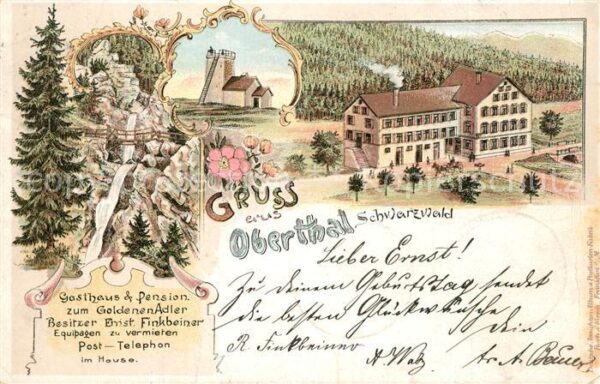 Gruss
aus
Oberthal Schwarzwald
Gasthaus & Pension
zum Goldenen Adler
Besitzer Ernst Finkbeiner
Equipagen zu vermieten
Post — Telephon
im Hause.
Lieber Ernst!
Zu deinem Geburtstag sendet
die besten Glückwünsche
dein
R. Finkbeiner